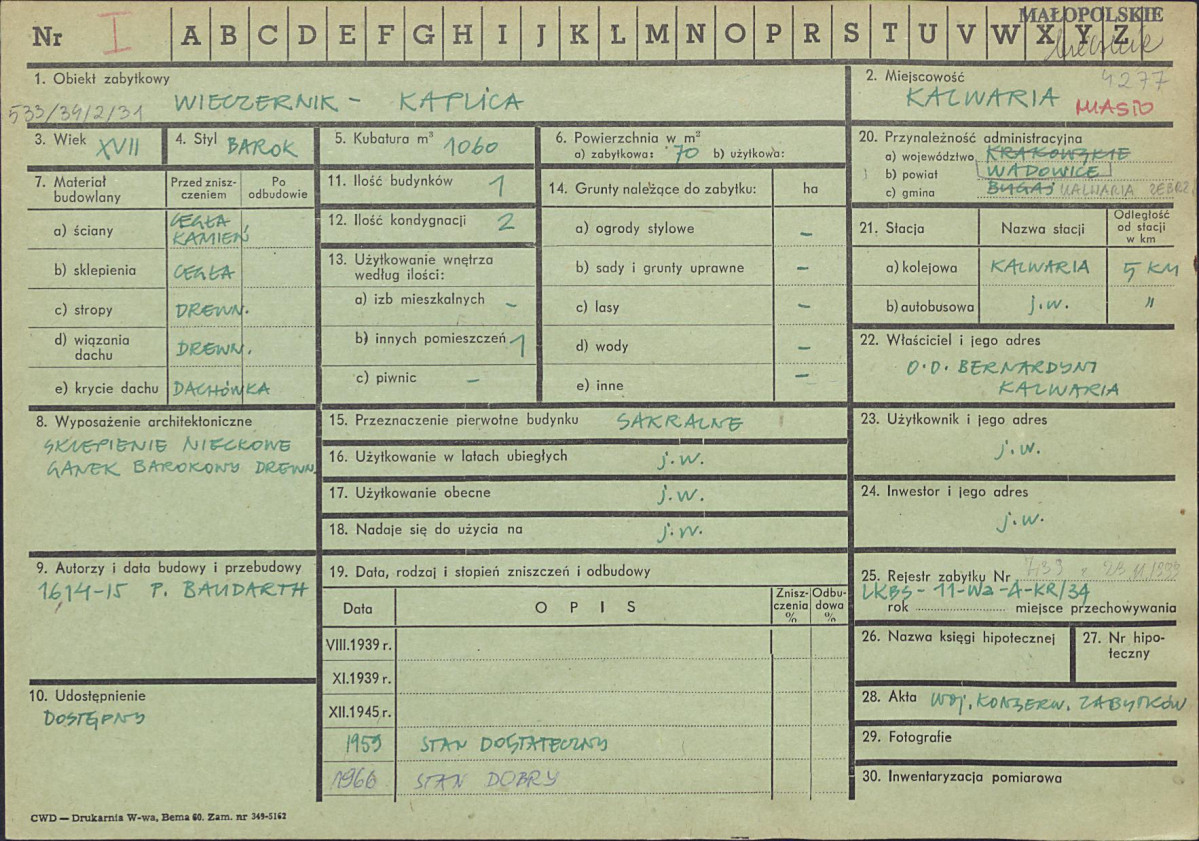 MAŁOPOLSKIE
Nr I A B C D E F G H I J K L M N O P R S T U V W X Y Z
4277
1. Obiekt zabytkowy
533/39/2/31 WIECZERNIK - KAPLICA
2. Miejscowość
KALWARIA MIASTO
3. Wiek XVII
4. Styl BAROK
5. Kubatura m³ 1060
6. Powierzchnia w m²
a) zabytkowa: 70 b) użytkowa:
20. Przynależność administracyjna
a) województwo KRAKOWSKIE
b) powiat WADOWICE
c) gmina BUGAJ KALWARIA ZEBRZ
7. Materiał budowlany
Przed zniszczeniem
Po odbudowie
a) ściany CEGŁA KAMIEŃ
b) sklepienia CEGŁA
c) stropy DREWN.
d) wiązania dachu DREWN.
e) krycie dachu DACHÓWKA
11. Ilość budynków 1
12. Ilość kondygnacji 2
13. Użytkowanie wnętrza
według ilości:
a) izb mieszkalnych –
b) innych pomieszczeń 1
c) piwnic –
14. Grunty należące do zabytku: ha
a) ogrody stylowe –
b) sady i grunty uprawne –
c) lasy –
d) wody –
e) inne –
21. Stacja Nazwa stacji Odległość od stacji w km
a) kolejowa KALWARIA 5 KM
b) autobusowa j.w. "
22. Właściciel i jego adres
O.O. BERNARDYNI
KALWARIA
8. Wyposażenie architektoniczne
SKLEPIENIE NIECKOWE
GANEK BAROKOWY DREWN.
15. Przeznaczenie pierwotne budynku SAKRALNE
16. Użytkowanie w latach ubiegłych j.w.
17. Użytkowanie obecne j.w.
18. Nadaje się do użycia na j.w.
23. Użytkownik i jego adres
j.w.
24. Inwestor i jego adres
j.w.
9. Autorzy i data budowy i przebudowy
1614-15 P. BAUDARTH
10. Udostępnienie
DOSTĘPNY
19. Data, rodzaj i stopień zniszczeń i odbudowy
Data OPIS Zniszczenia % Odbudowa %
VIII.1939 r.
XI.1939 r.
XII.1945 r.
1959 STAN DOSTATECZNY
1966 STAN DOBRY
25. Rejestr zabytku Nr
LKBS-11-Wa-A-KR/34
rok miejsce przechowywania
26. Nazwa księgi hipotecznej
27. Nr hipoteczny
28. Akta WOJ. KONSERW. ZABYTKÓW
29. Fotografie
30. Inwentaryzacja pomiarowa
CWD — Drukarnia W-wa, Bema 60. Zam. nr 349-5162